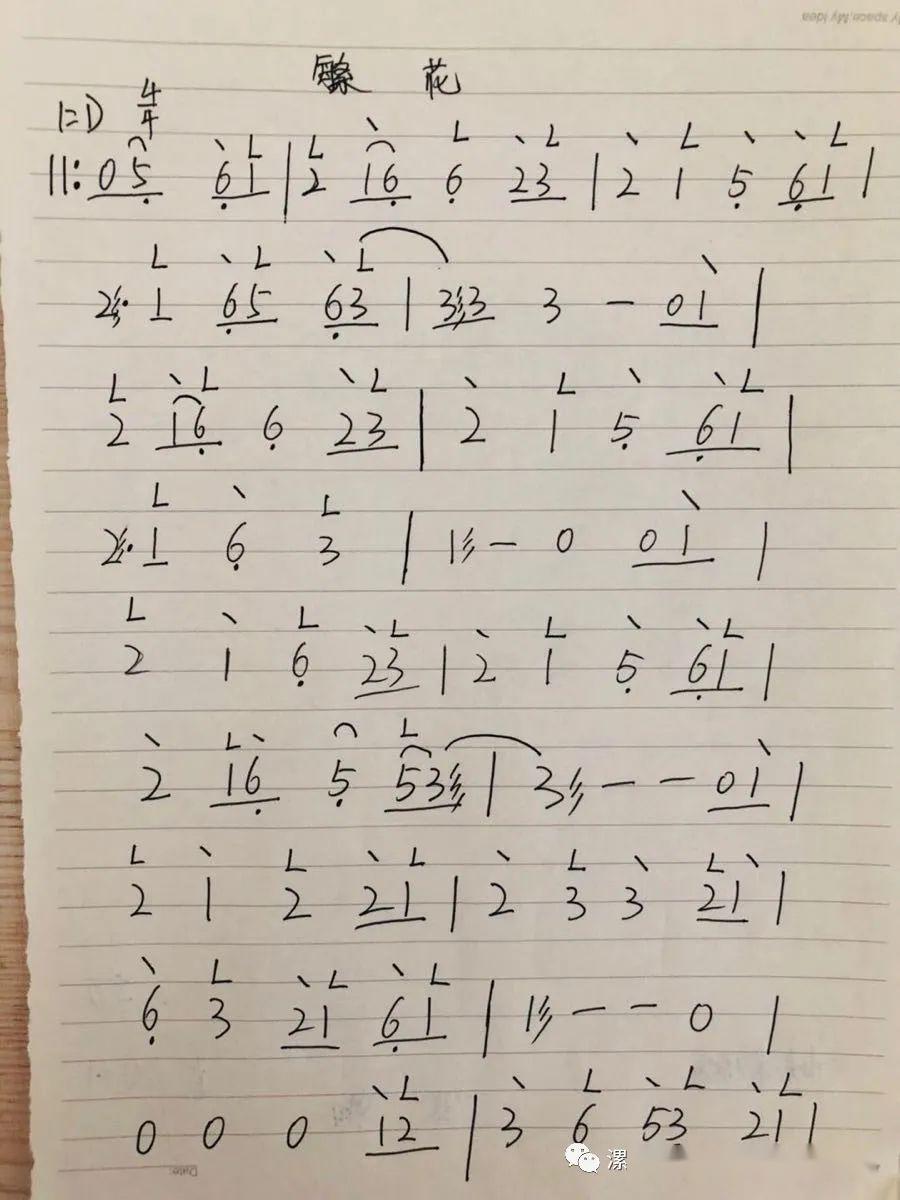 My space, My idea
繁 花
1=D 4/4
‖: 0 5̣ 6̣ 1 | 2 1 6̣ 6̣ 2 3 | 2 1 5̣ 6̣ 1 |
2⫽· 1 6̣ 5 6̣ 3 | 3⫽ 3 3 — 0 1 |
2 1 6̣ 6̣ 2 3 | 2 1 5̣ 6̣ 1 |
2⫽· 1 6̣ 3 | 1⫽ — 0 0 1 |
2 1 6̣ 2 3 | 2 1 5̣ 6̣ 1 |
2 1 6̣ 5̣ 5 3⫽ | 3⫽ — — 0 1 |
2 1 2 2 1 | 2 3 3 2 1 |
6̣ 3 2 1 6̣ 1 | 1⫽ — — 0 |
0 0 0 1 2 | 3 6 5 3 2 1 |
Date:
漯